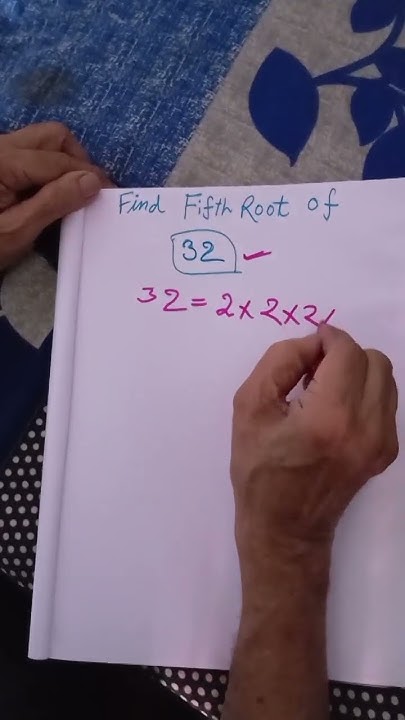 Find Fifth Root of
32
32 = 2 x 2 x 2